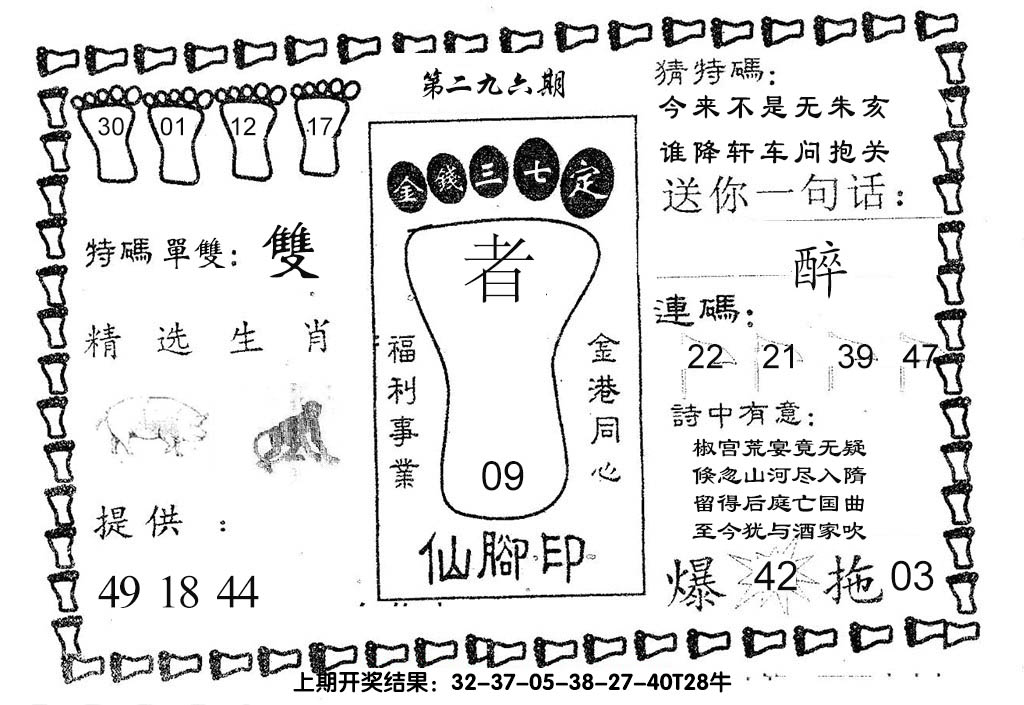 第二九六期
30 01 12 17
特碼單雙：雙
精选生肖
提供：
49 18 44
金錢三七定
者
福利事業
金港同心
09
仙腳印
猜特碼：
今来不是无朱亥
谁降轩车问抱关
送你一句话：
醉
連碼：
22 21 39 47
詩中有意：
椒宫荒宴竟无疑
倏忽山河尽入隋
留得后庭亡国曲
至今犹与酒家吹
爆 42 拖 03
上期开奖结果：32-37-05-38-27-40T28牛